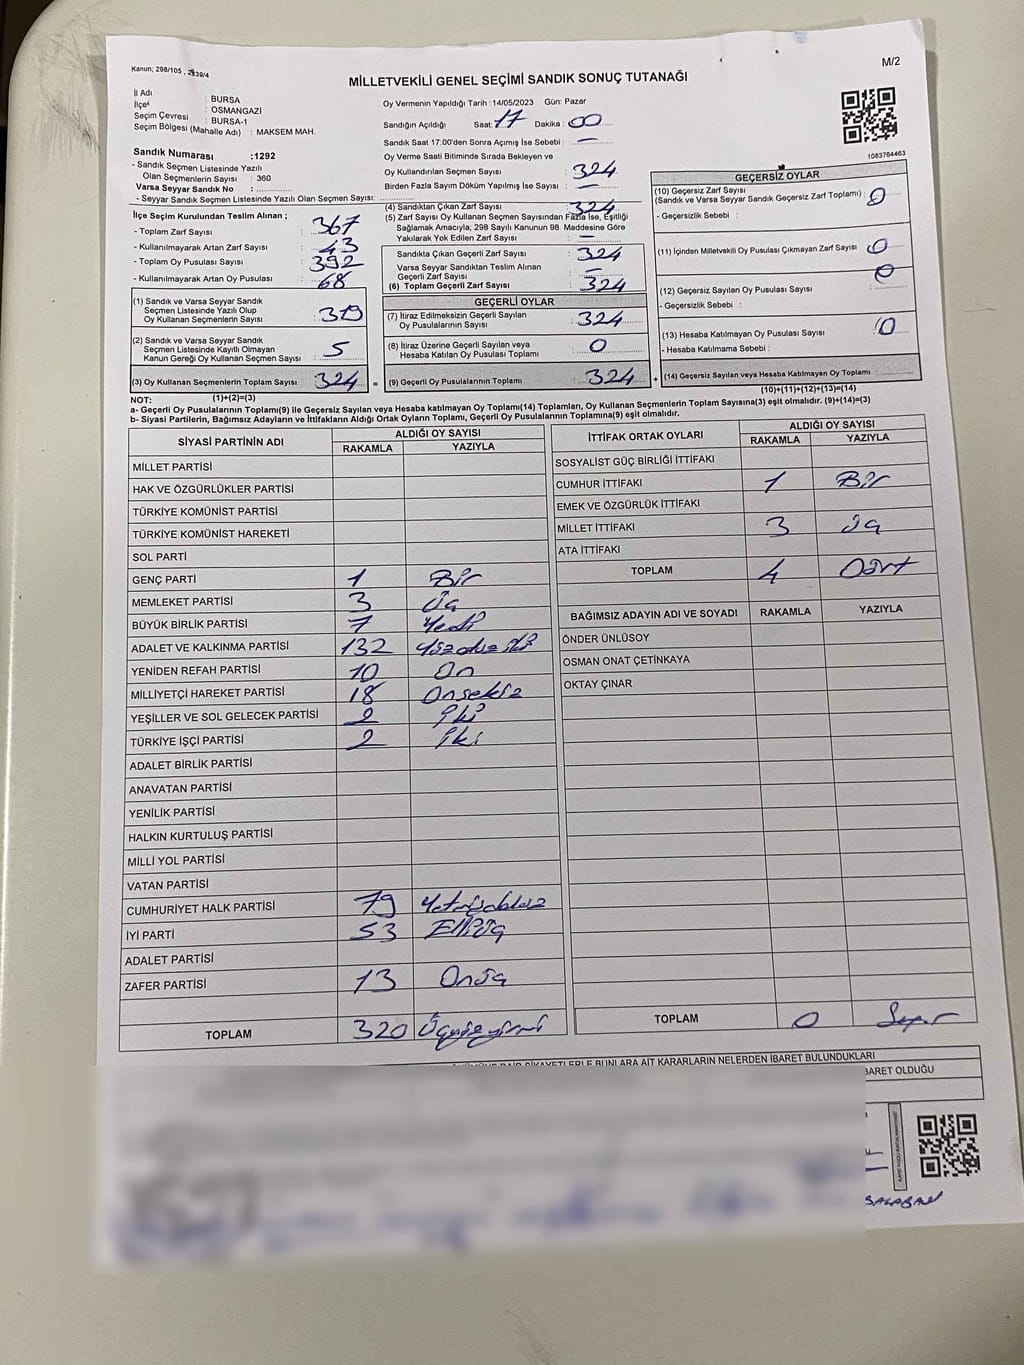 Kanun; 298/105 , 2839/4
M/2
MİLLETVEKİLİ GENEL SEÇİMİ SANDIK SONUÇ TUTANAĞI
İl Adı : BURSA
İlçe : OSMANGAZİ
Seçim Çevresi : BURSA-1
Seçim Bölgesi (Mahalle Adı) : MAKSEM MAH.
Sandık Numarası :1292
- Sandık Seçmen Listesinde Yazılı
Olan Seçmenlerin Sayısı : 360
Varsa Seyyar Sandık No :
- Seyyar Sandık Seçmen Listesinde Yazılı Olan Seçmen Sayısı:
İlçe Seçim Kurulundan Teslim Alınan ;
- Toplam Zarf Sayısı : 367
- Kullanılmayarak Artan Zarf Sayısı : 43
- Toplam Oy Pusulası Sayısı : 392
- Kullanılmayarak Artan Oy Pusulası : 68
(1) Sandık ve Varsa Seyyar Sandık
Seçmen Listesinde Yazılı Olup
Oy Kullanan Seçmenlerin Sayısı : 319
(2) Sandık ve Varsa Seyyar Sandık
Seçmen Listesinde Kayıtlı Olmayan
Kanun Gereği Oy Kullanan Seçmen Sayısı : 5
(3) Oy Kullanan Seçmenlerin Toplam Sayısı : 324 =
(1)+(2)=(3)
Oy Vermenin Yapıldığı Tarih :14/05/2023 Gün: Pazar
Sandığın Açıldığı Saat: 17 Dakika : 00
Sandık Saat 17.00'den Sonra Açımış İse Sebebi : —
Oy Verme Saati Bitiminde Sırada Bekleyen ve
Oy Kullandırılan Seçmen Sayısı : 324
Birden Fazla Sayım Döküm Yapılmış İse Sayısı : —
(4) Sandıktan Çıkan Zarf Sayısı : 324
(5) Zarf Sayısı Oy Kullanan Seçmen Sayısından Fazla İse, Eşitliği
Sağlamak Amacıyla; 298 Sayılı Kanunun 98. Maddesine Göre
Yakılarak Yok Edilen Zarf Sayısı : —
Sandıkta Çıkan Geçerli Zarf Sayısı : 324
Varsa Seyyar Sandıktan Teslim Alınan
Geçerli Zarf Sayısı : —
(6) Toplam Geçerli Zarf Sayısı : 324
GEÇERLİ OYLAR
(7) İtiraz Edilmeksizin Geçerli Sayılan
Oy Pusulalarının Sayısı : 324
(8) İtiraz Üzerine Geçerli Sayılan veya
Hesaba Katılan Oy Pusulası Toplamı : 0
(9) Geçerli Oy Pusulalarının Toplamı : 324 +
1083764463
GEÇERSİZ OYLAR
(10) Geçersiz Zarf Sayısı
(Sandık ve Varsa Seyyar Sandık Geçersiz Zarf Toplamı) : 0
- Geçersizlik Sebebi :
(11) İçinden Milletvekili Oy Pusulası Çıkmayan Zarf Sayısı : 0
(12) Geçersiz Sayılan Oy Pusulası Sayısı : 0
- Geçersizlik Sebebi :
(13) Hesaba Katılmayan Oy Pusulası Sayısı : 0
- Hesaba Katılmama Sebebi :
(14) Geçersiz Sayılan veya Hesaba Katılmayan Oy Toplamı :
(10)+(11)+(12)+(13)=(14)
NOT:
a- Geçerli Oy Pusulalarının Toplamı(9) ile Geçersiz Sayılan veya Hesaba katılmayan Oy Toplamı(14) Toplamları, Oy Kullanan Seçmenlerin Toplam Sayısına(3) eşit olmalıdır. (9)+(14)=(3)
b- Siyasi Partilerin, Bağımsız Adayların ve İttifakların Aldığı Ortak Oyların Toplamı, Geçerli Oy Pusulalarının Toplamına(9) eşit olmalıdır.
SİYASİ PARTİNİN ADI ALDIĞI OY SAYISI
RAKAMLA YAZIYLA
MİLLET PARTİSİ
HAK VE ÖZGÜRLÜKLER PARTİSİ
TÜRKİYE KOMÜNİST PARTİSİ
TÜRKİYE KOMÜNİST HAREKETİ
SOL PARTİ
GENÇ PARTİ 1 Bir
MEMLEKET PARTİSİ 3 Üç
BÜYÜK BİRLİK PARTİSİ 7 Yedi
ADALET VE KALKINMA PARTİSİ 132 Yüzotuziki
YENİDEN REFAH PARTİSİ 10 On
MİLLİYETÇİ HAREKET PARTİSİ 18 Onsekiz
YEŞİLLER VE SOL GELECEK PARTİSİ 2 İki
TÜRKİYE İŞÇİ PARTİSİ 2 İki
ADALET BİRLİK PARTİSİ
ANAVATAN PARTİSİ
YENİLİK PARTİSİ
HALKIN KURTULUŞ PARTİSİ
MİLLİ YOL PARTİSİ
VATAN PARTİSİ
CUMHURİYET HALK PARTİSİ 79 Yetmişdokuz
İYİ PARTİ 53 Elliüç
ADALET PARTİSİ
ZAFER PARTİSİ 13 Onüç
TOPLAM 320 Üçyüzyirmi
İTTİFAK ORTAK OYLARI ALDIĞI OY SAYISI
RAKAMLA YAZIYLA
SOSYALİST GÜÇ BİRLİĞİ İTTİFAKI
CUMHUR İTTİFAKI 1 Bir
EMEK VE ÖZGÜRLÜK İTTİFAKI
MİLLET İTTİFAKI 3 Üç
ATA İTTİFAKI
TOPLAM 4 Dört
BAĞIMSIZ ADAYIN ADI VE SOYADI RAKAMLA YAZIYLA
ÖNDER ÜNLÜSOY
OSMAN ONAT ÇETİNKAYA
OKTAY ÇINAR
TOPLAM 0 Sıfır
ŞİKAYETLERLE BUNLARA AİT KARARLARIN NELERDEN İBARET BULUNDUKLARI
İBARET OLDUĞU
BALABAN